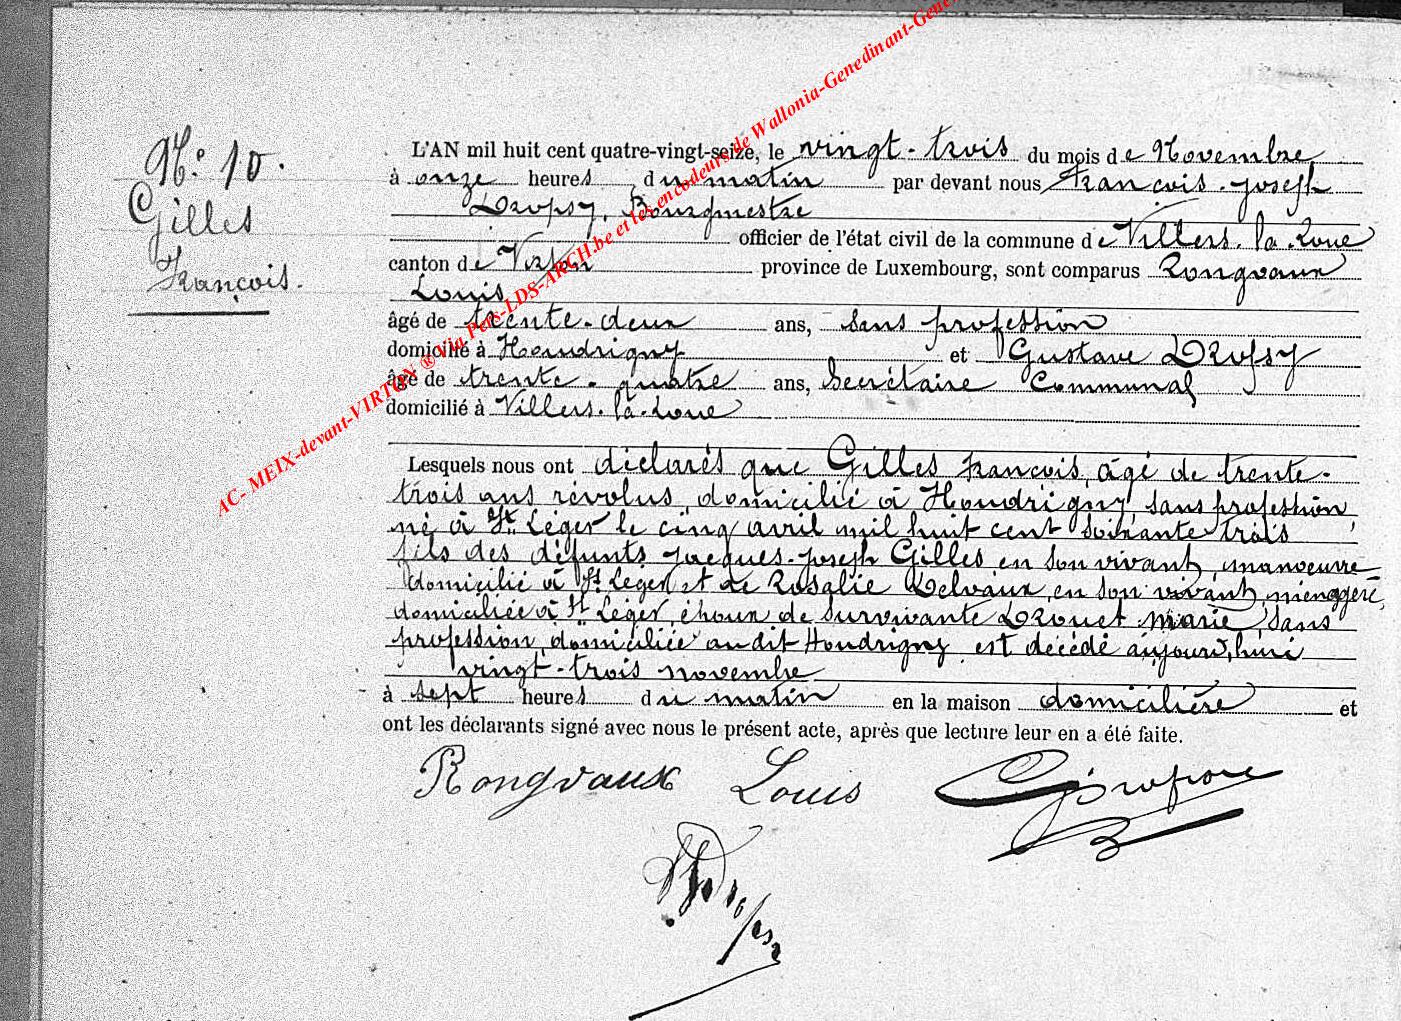 N.º 10.
Gilles
François.
L'AN mil huit cent quatre-vingt-seize, le vingt-trois du mois de Novembre
à onze heures du matin par devant nous François-Joseph
Dropsy, Bourgmestre
officier de l'état civil de la commune de Villers-la-Loue
canton de Virton province de Luxembourg, sont comparus Rongvaux
Louis
âgé de trente-deux ans, sans profession
domicilié à Houdrigny et Gustave Dropsy
âgé de trente-quatre ans, Secrétaire Communal
domicilié à Villers-la-Loue
Lesquels nous ont déclarés que Gilles François, âgé de trente-
trois ans révolus, domicilié à Houdrigny, sans profession,
né à St Léger le cinq avril mil huit cent soixante trois
fils des défunts Jacques-Joseph Gilles en son vivant, manoeuvre
domicilié à St Léger et de Rosalie Delvaux, en son vivant, ménagère,
domiciliée à St Léger, époux de survivante Drouet Marie, sans
profession, domiciliée audit Houdrigny, est décédé aujourd'hui
vingt-trois novembre
à sept heures du matin en la maison domicilière et
ont les déclarants signé avec nous le présent acte, après que lecture leur en a été faite.
Rongvaux Louis
AC- MEIX-devant-VIRTON ® Via Pers-LDS-ARCH.be et les encodeurs de Wallonia-Genedinant-Gene